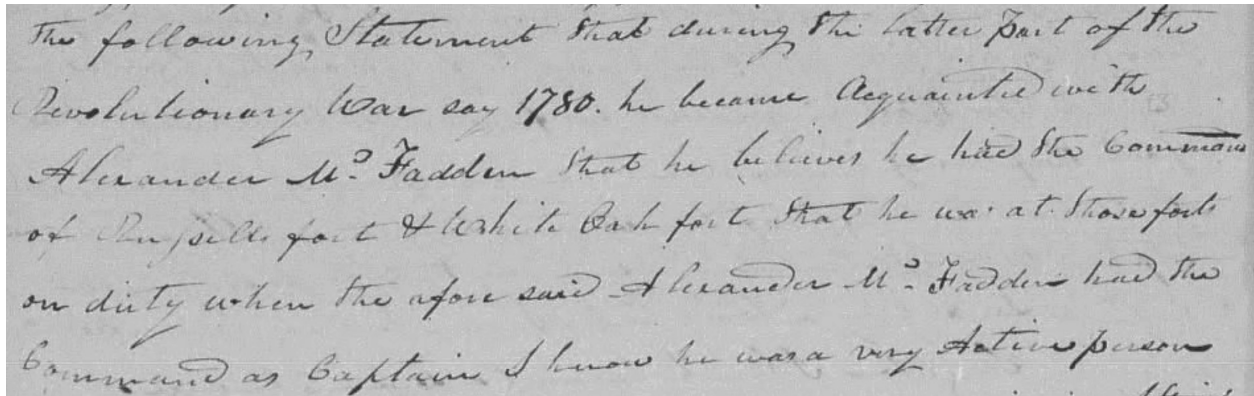 the following Statement that during the latter part of the
Revolutionary War say 1780. he became Acquainted with
Alexander Mc. Fadden that he believes he had the Command
of Russells fort & White Oak fort that he was at those forts
on duty when the afore said Alexander Mc. Fadden had the
Command as Captain I know he was a very Active person